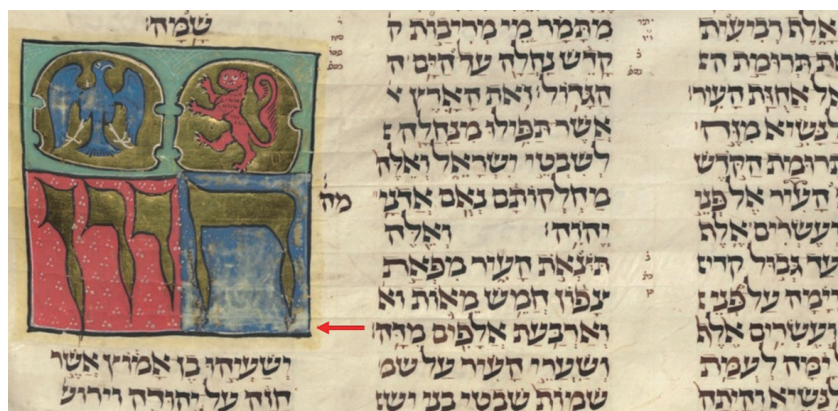 אלף רביעית
את תרומת הק
אל אחזת העיר
לנשיא מזה
תרומת הקדש
העיר אל פני
ועשרים אלף
עד גבול קדימ
וימה על פני
ועשרים אלף
ימה לעמת
לנשיא והיתה
מתמר מי מריבות ק
קדש נחלה על הים ה
הגדול זאת הארץ א
אשר תפילו מנחלה
לשבטי ישראל ואלה
מחלקותם נאם אדני
יהוה ואלה
תוצאת העיר מפאת
צפון חמש מאות וא
וארבעת אלפים מדה
ושערי העיר על שמ
שמות שבטי בני ישר
שמה
חזון
ישעיהו בן אמוץ אשר
חזה על יהודה וירוש